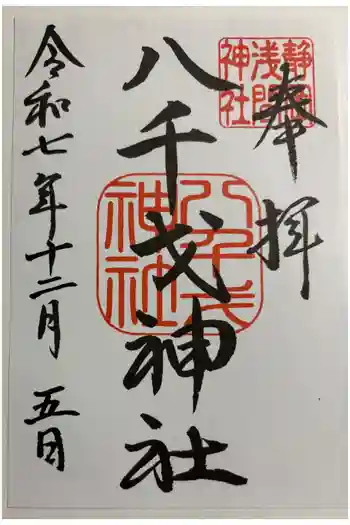 奉拝
静岡浅間神社
八千戈神社
八千戈神社
令和七年十二月五日